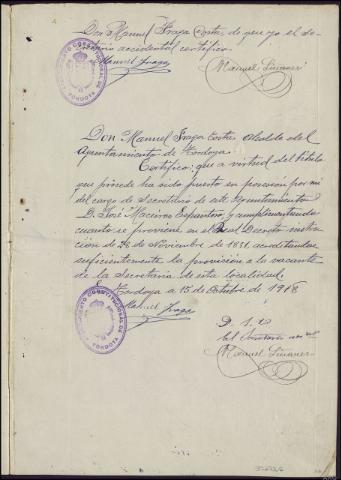 Don Manuel Fraga Costa, de que yo el
accidental certifico.
Manuel Fraga
Manuel Linares
AYUNTAMIENTO CONSTITUCIONAL DE TORDOYA
Don Manuel Fraga Costa Alcalde del
Ayuntamiento de Tordoya.
Certifico: que a virtud del título
que precede ha sido puesto en posesión por mi
del cargo de Secretario de este Ayuntamiento
D. José Maceiras y cumplimentando
cuanto se previene en el Real Decreto
de 28 de Noviembre de 1851
suficientemente la provisión a la vacante
de la Secretaria de esta localidad.
Tordoya a 15 de Octubre de 1918
Manuel Fraga
AYUNTAMIENTO CONSTITUCIONAL DE TORDOYA
El Secretario
Manuel Linares